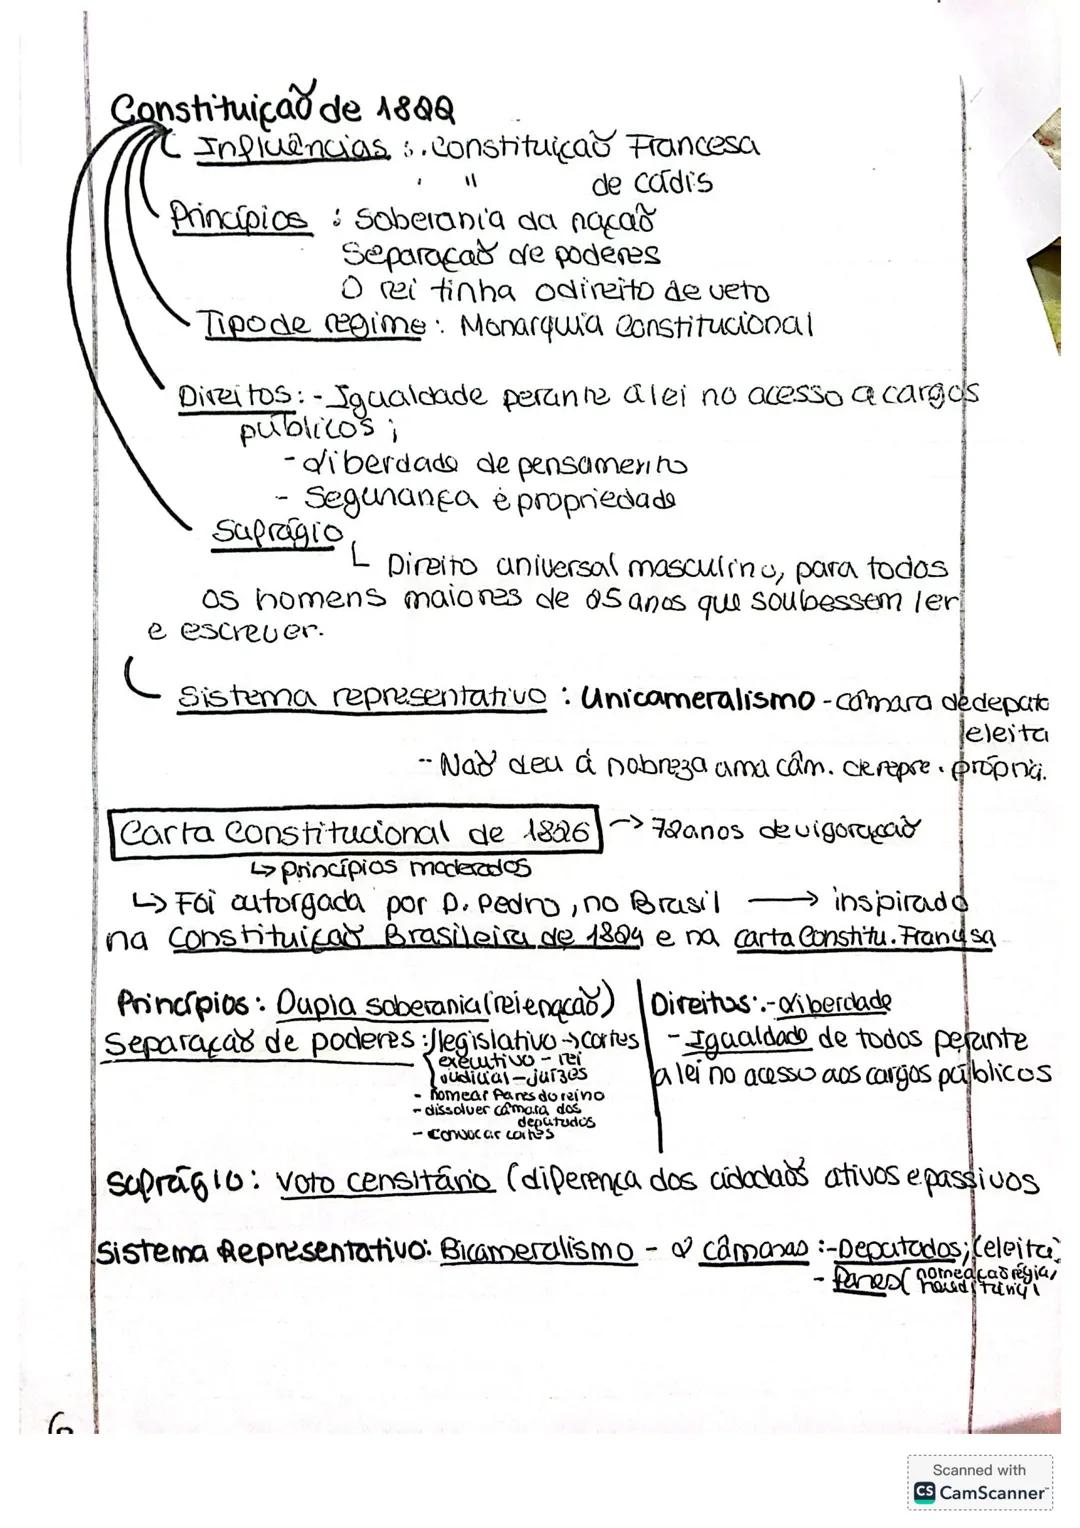 Constituição de 1822
Influências : . Constituição Francesa
. " de cádis
Princípios : soberania da nação
Separação de poderes
O rei tinha o direito de veto
Tipo de regime : Monarquia Constitucional
Direitos: - Igualdade perante a lei no acesso a cargos
públicos ;
- liberdade de pensamento
- Segurança e propriedade
Sufrágio
Direito universal masculino, para todos
os homens maiores de 25 anos que soubessem ler
e escrever.
Sistema representativo : Unicameralismo - câmara de deputa
eleita
- Não deu à nobreza uma câm. de repre. própria.
Carta Constitucional de 1826 → 72 anos de vigoração
↳ princípios moderados
↳ Foi outorgada por D. Pedro, no Brasil → inspirado
na Constituição Brasileira de 1824 e na carta Constitu. Francesa
Princípios : Dupla soberania (rei e nação)
Separação de poderes : legislativo → cortes
executivo - rei
judicial - juízes
- nomear Pares do reino
- dissolver câmara dos
deputados
- convocar cortes
Direitos : - liberdade
- Igualdade de todos perante
a lei no acesso aos cargos públicos
Sufrágio : voto censitário (diferença dos cidadãos ativos e passivos
Sistema Representativo: Bicameralismo - 2 câmaras : - Deputados; (eleita)
- Pares ( nomeação régia,
6
Scanned with
CS CamScanner